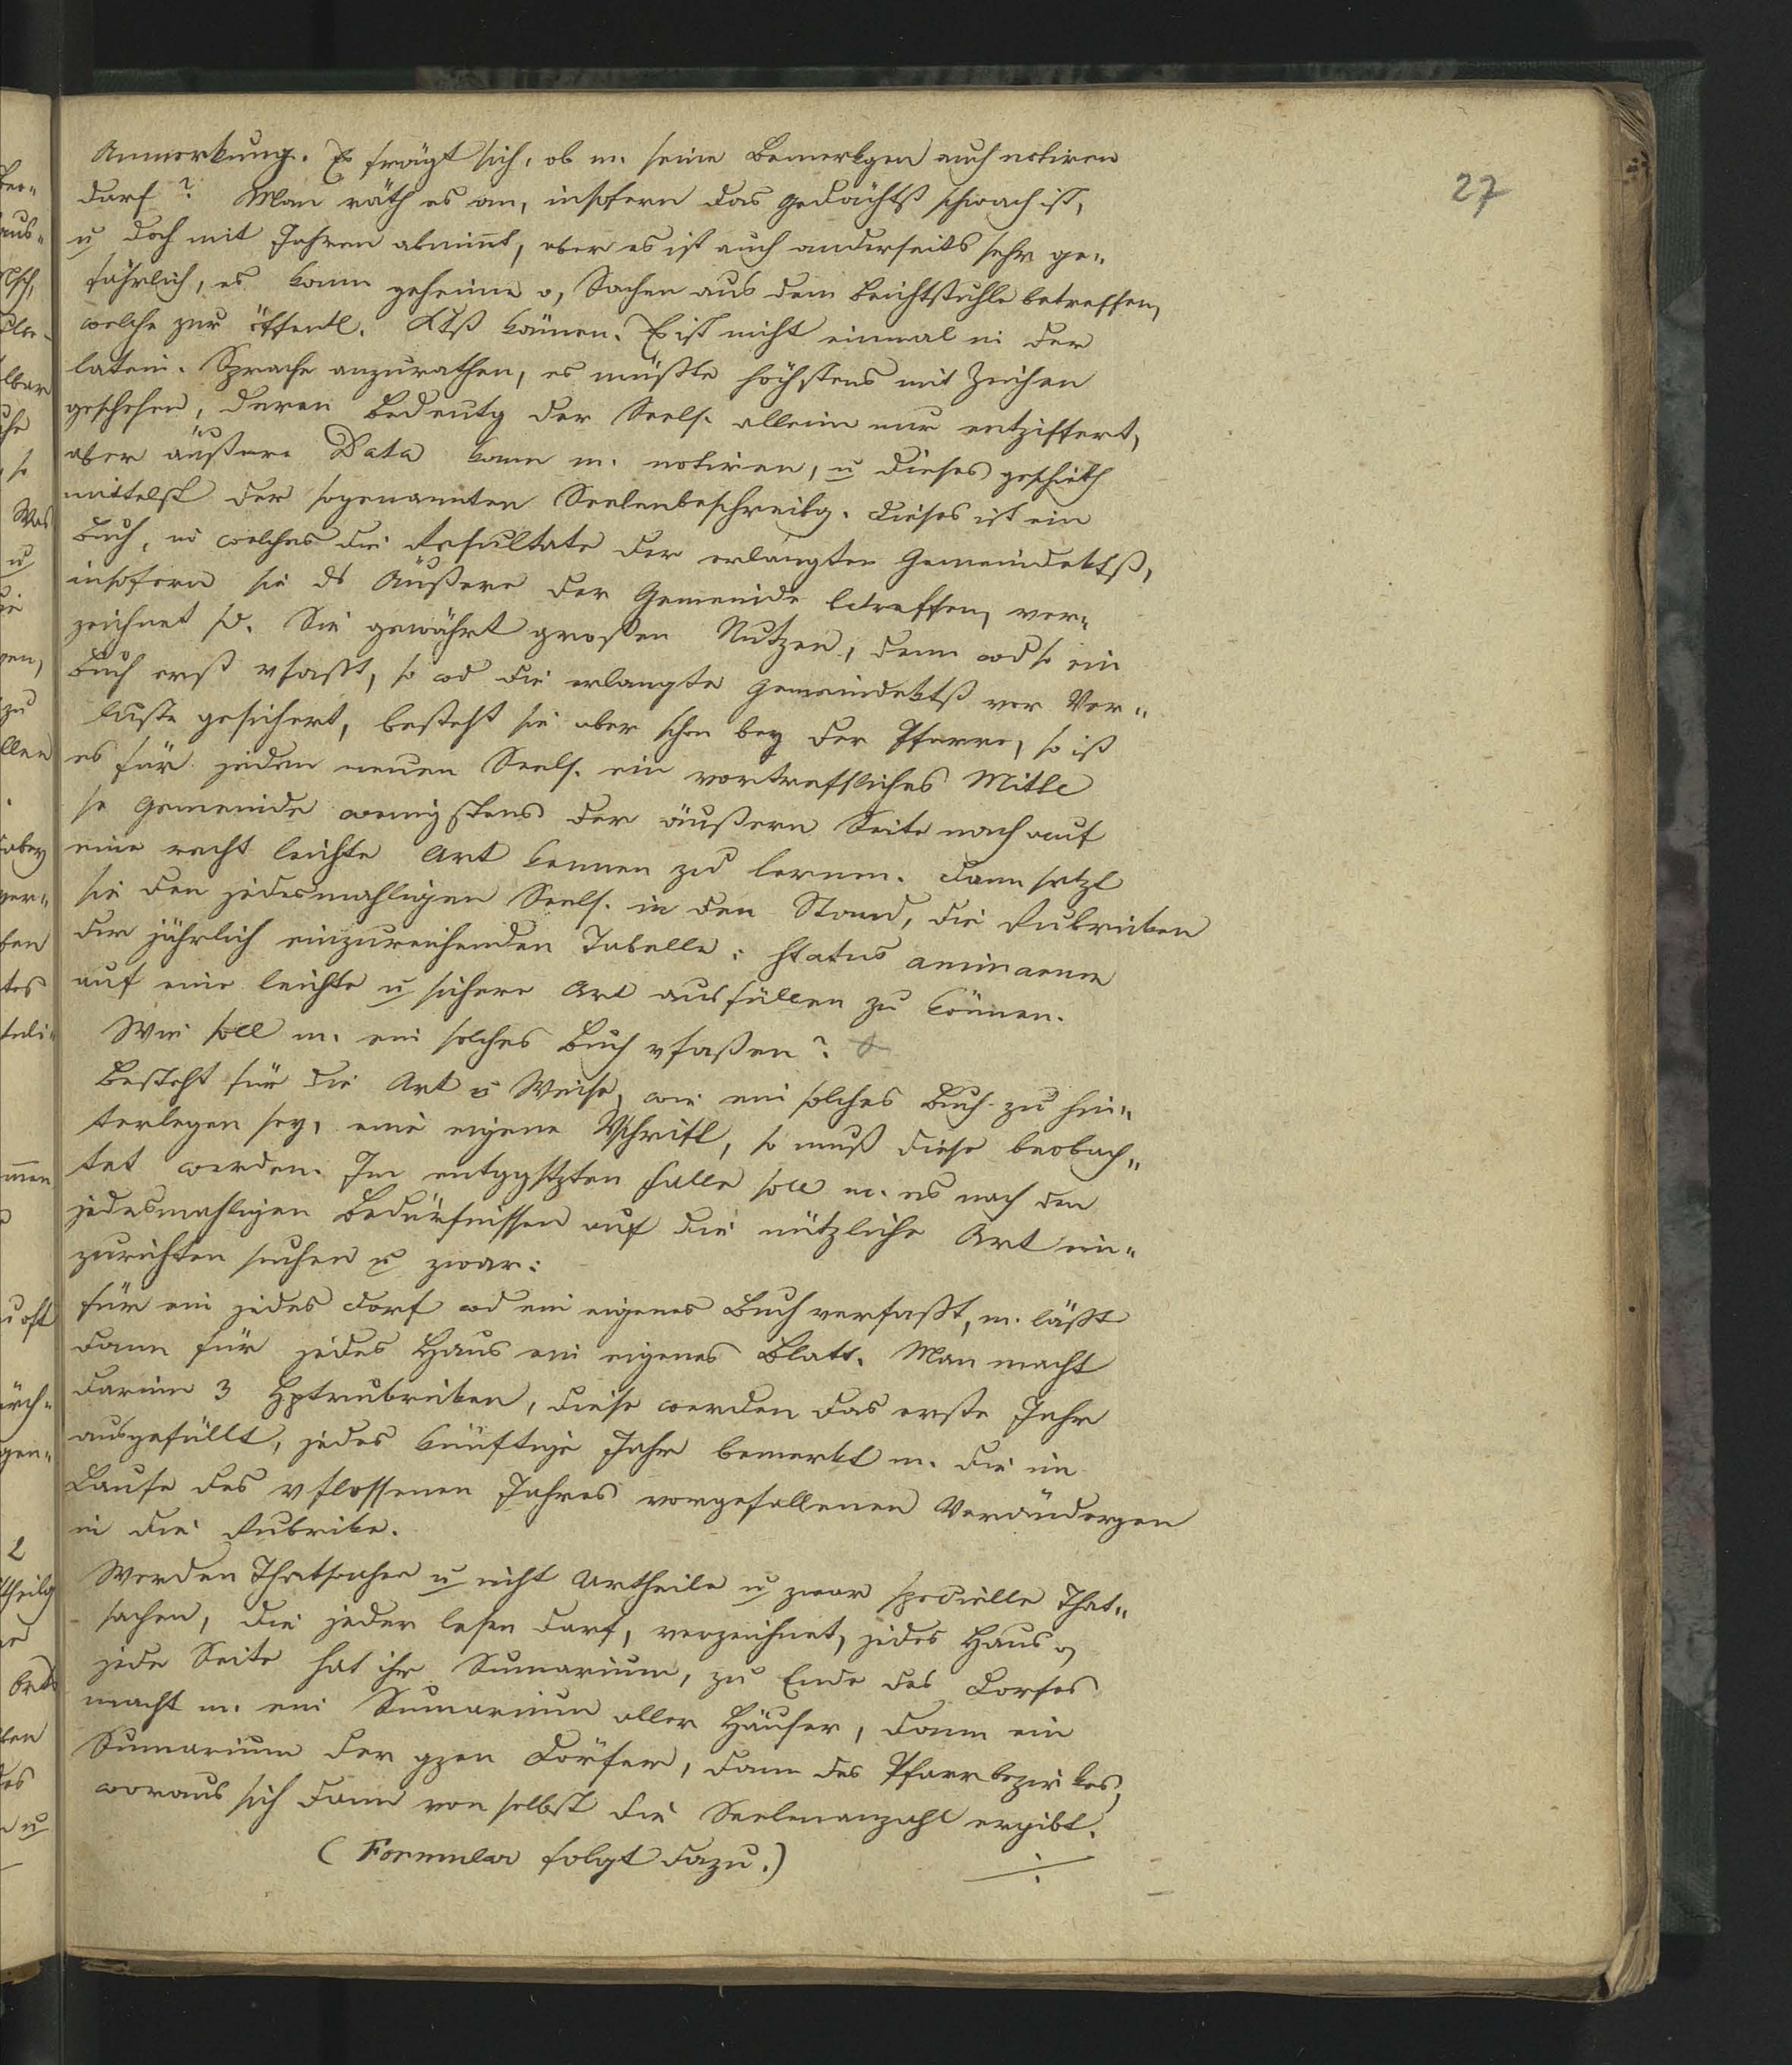 27
Anmerkung. Es frägt sich, ob m. seine Bemerkgen auch notiren
darf? Man räth es an, insofern das Gedächtß schwach ist,
u doch mit Jahren abnimt, aber es ist auch anderseits sehr ge=
fährlich, es kann geheime Sachen aus dem Beichtstuhle betreffen,
welche zur öffentl. Ktß kämen. Es ist nicht einmal in der
latein. Sprache anzurathen, es müßte höchstens mit Zeichen
geschehen, deren Bedeutg der Seels. allein nur entziffert,
aber äußere Data kann m. notiren, u dieses geschieht
mittelst der sogenannten Seelenbeschreibg. Dieses ist ein
Buch, in welches die Resultate der erlangten Gemeindektß,
insofern sie ds Äußere der Gemeinde betreffen, ver=
zeichnet sd. Sie gewährt großen Nutzen, denn wd so ein
Buch erst vfaßt, so wd die erlangte Gemeindektß vor Ver=
luste gesichert, besteht sie aber schon bey der Pfarre, so ist
es für jeden neuen Seels. ein vortreffliches Mittl
se Gemeinde wenigstens der äußern Seite nach auf
eine recht leichte Art kennen zu lernen. Dann setzt
sie den jedesmahligen Seels. in den Stand, die Rubriken
der jährlich einzureichenden Tabelle: status animarum
auf eine leichte u sichere Art ausfüllen zu können.
Wie soll m. ein solches Buch vfaßen?
Besteht für die Art u Weise, wie ein solches Buch zu hin=
terlegen sey, eine eigene Vschrift, so muß diese beobach=
tet werden. Im entggstzten Falle soll m. es nach den
jedesmahligen Bedürfnissen auf die nützliche Art ein=
zurichten suchen u zwar:
für ein jedes Dorf wd ein eigenes Buch verfaßt, m. läßt
dann für jedes Haus ein eigenes Blatt. Man macht
darinn 3 Hptrubriken, diese werden das erste Jahr
ausgefüllt, jedes künftige Jahr bemerkt m. die im
Laufe des vflossenen Jahres vorgefallenen Verändergen
in die Rubrike.
Werden Thatsachen u nicht Urtheile u zwar specielle That=
sachen, die jeder lesen darf, verzeichnet, jedes Haus
jede Seite hat ihr Sumarium, zu Ende des Dorfes
macht m. ein Sumarium aller Häuser, dann ein
Sumarium der gzen Dörfer, dann des Pfarrbezirkes,
woraus sich dann von selbst die Seelenanzahl ergibt.
(Formular folgt dazu.)